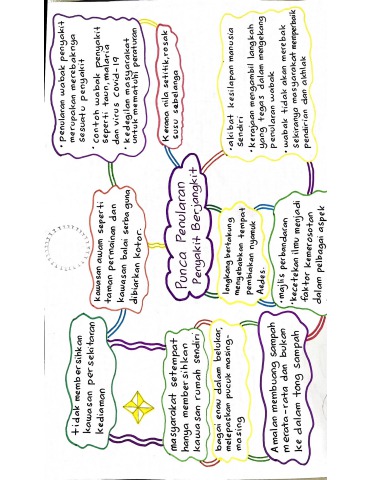 tidak membersihkan
kawasan persekitaran
kediaman
kawasan awam seperti
taman permainan dan
kawasan balai serba guna
dibiarkan kotor.
• Penularan wabak penyakit
merupakan merebaknya
sesuatu penyakit
• contoh wabak penyakit
seperti taun, malaria
dan virus covid-19
• kedegilan masyarakat
untuk mematuhi peraturan
masyarakat setempat
hanya membersihkan
kawasan rumah sendiri
Punca Penularan
Penyakit Berjangkit
Kerana nila setitik, rosak
susu sebelanga
bagai enau dalam belukar,
melepaskan pucuk masing-
masing
longkang bertakung
menyebabkan tempat
pembiakan nyamuk
Aedes.
• akibat kesilapan manusia
sendiri
• kerajaan mengambil langkah
yang tegas dalam mengekang
penularan wabak
• wabak tidak akan merebak
sekiranya masyarakat memperbaik
pendirian dan akhlak
Amalan membuang sampah
merata-rata dan bukan
ke dalam tong sampah
• majlis perbandaran
• kecetekan ilmu menjadi
faktor kemerosotan
dalam pelbagai aspek